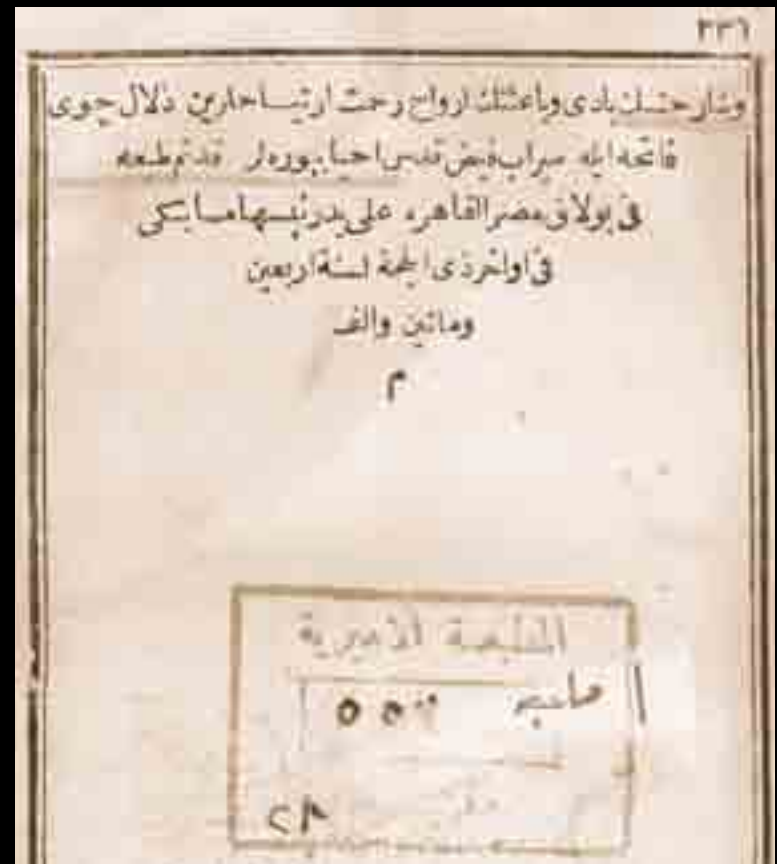 ٣٣٦
وشارحنك بادى وباعثنك ارواح رحمت ارتيـاحلرين ذلال جوى
فاتحه ايله سيراب فيض قدس احيا بيوره لر قدتم طبعه
فى بولاق مصر القاهره على يد رئيسها مسابكى
فى اواخر ذى الحجة لسنة اربعين
وماتين والف
م
المطبعة الأميرية